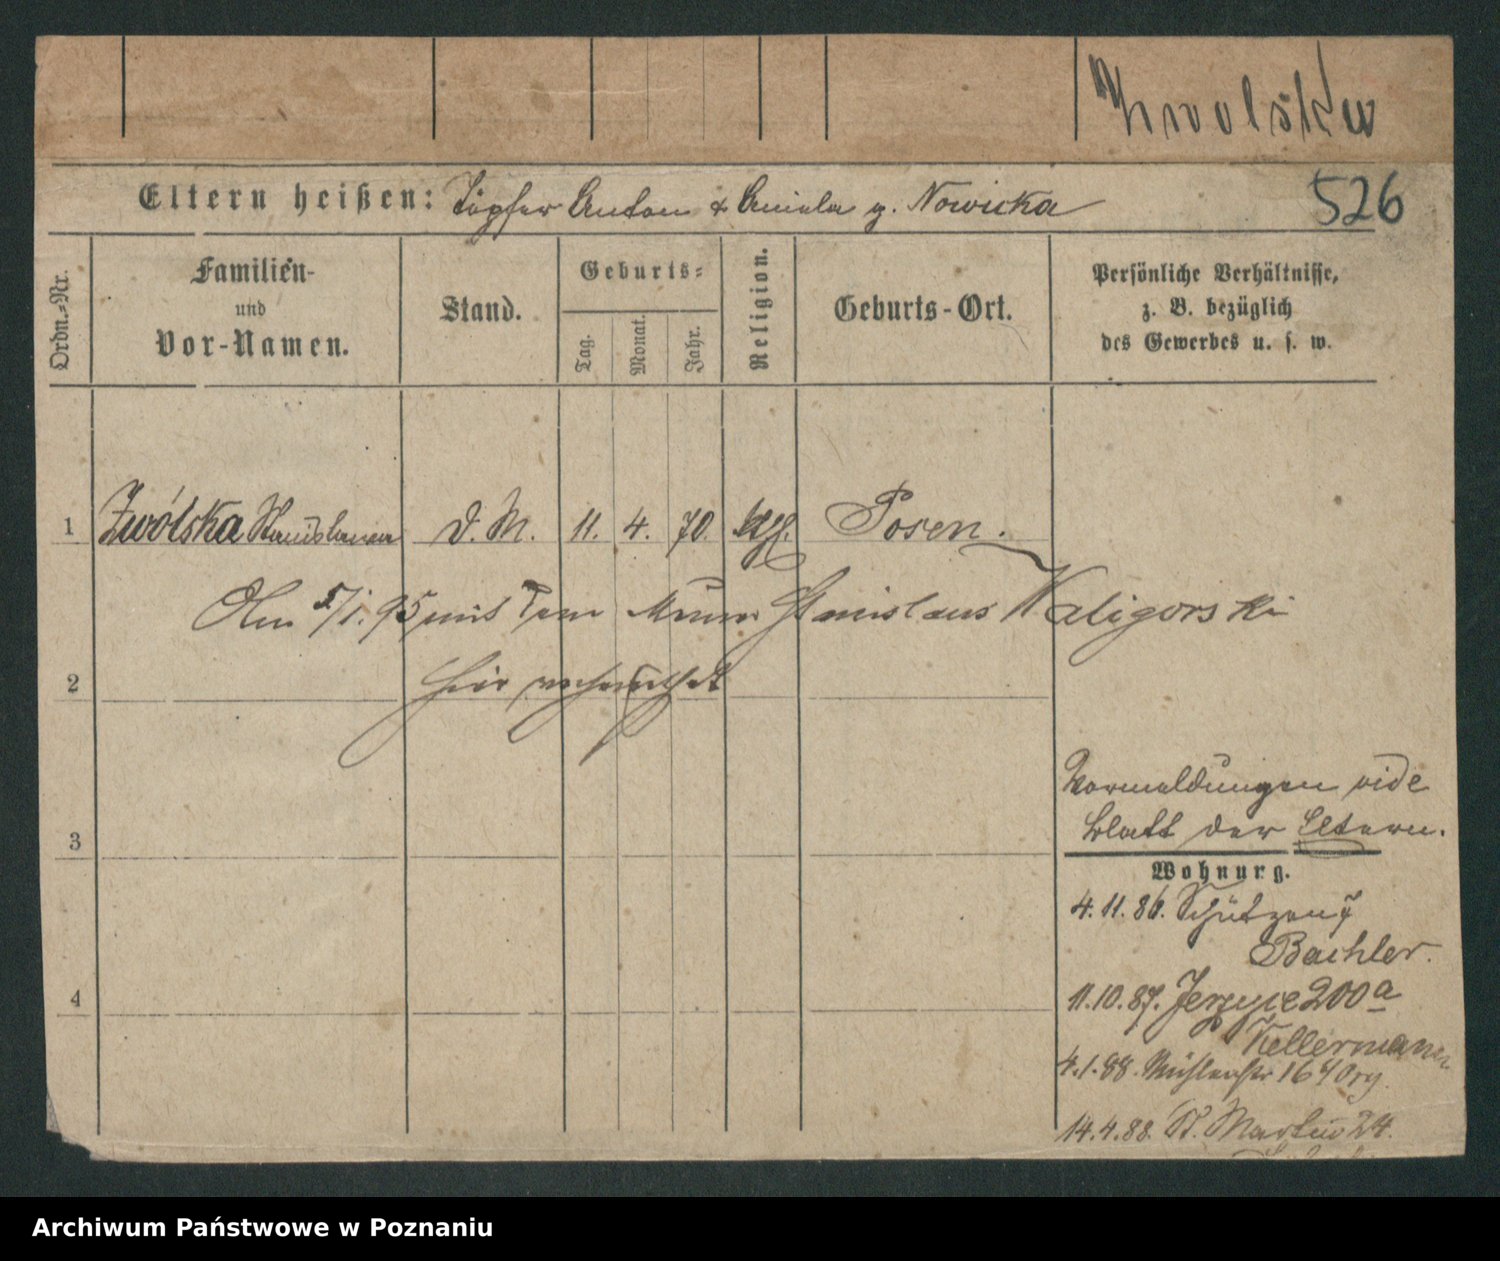 Zwolska
526
Eltern heißen: Töpfer Anton & Aniela g. Nowicka
Ordn.-Nr.
Familien-
und
Vor-Namen.
Stand.
Geburts-
Tag.
Monat.
Jahr.
Religion.
Geburts-Ort.
Persönliche Verhältnisse,
z. B. bezüglich
des Gewerbes u. s. w.
1 Zwólska Stanislawa d. M. 11. 4. 70. Posen.
Am 5/1. 95 mit dem Stanislaus Waligorski
hier verheirathet
2
3
4
Vormeldungen vide
Blatt der Eltern.
Wohnung.
4. 11. 86. Schützen 7
Bachler.
11. 10. 87. Jerzyce 200 a
Kellermann
4. 1. 88. Mühlenstr 16
14. 4. 88. St. Martin 24.
Archiwum Państwowe w Poznaniu